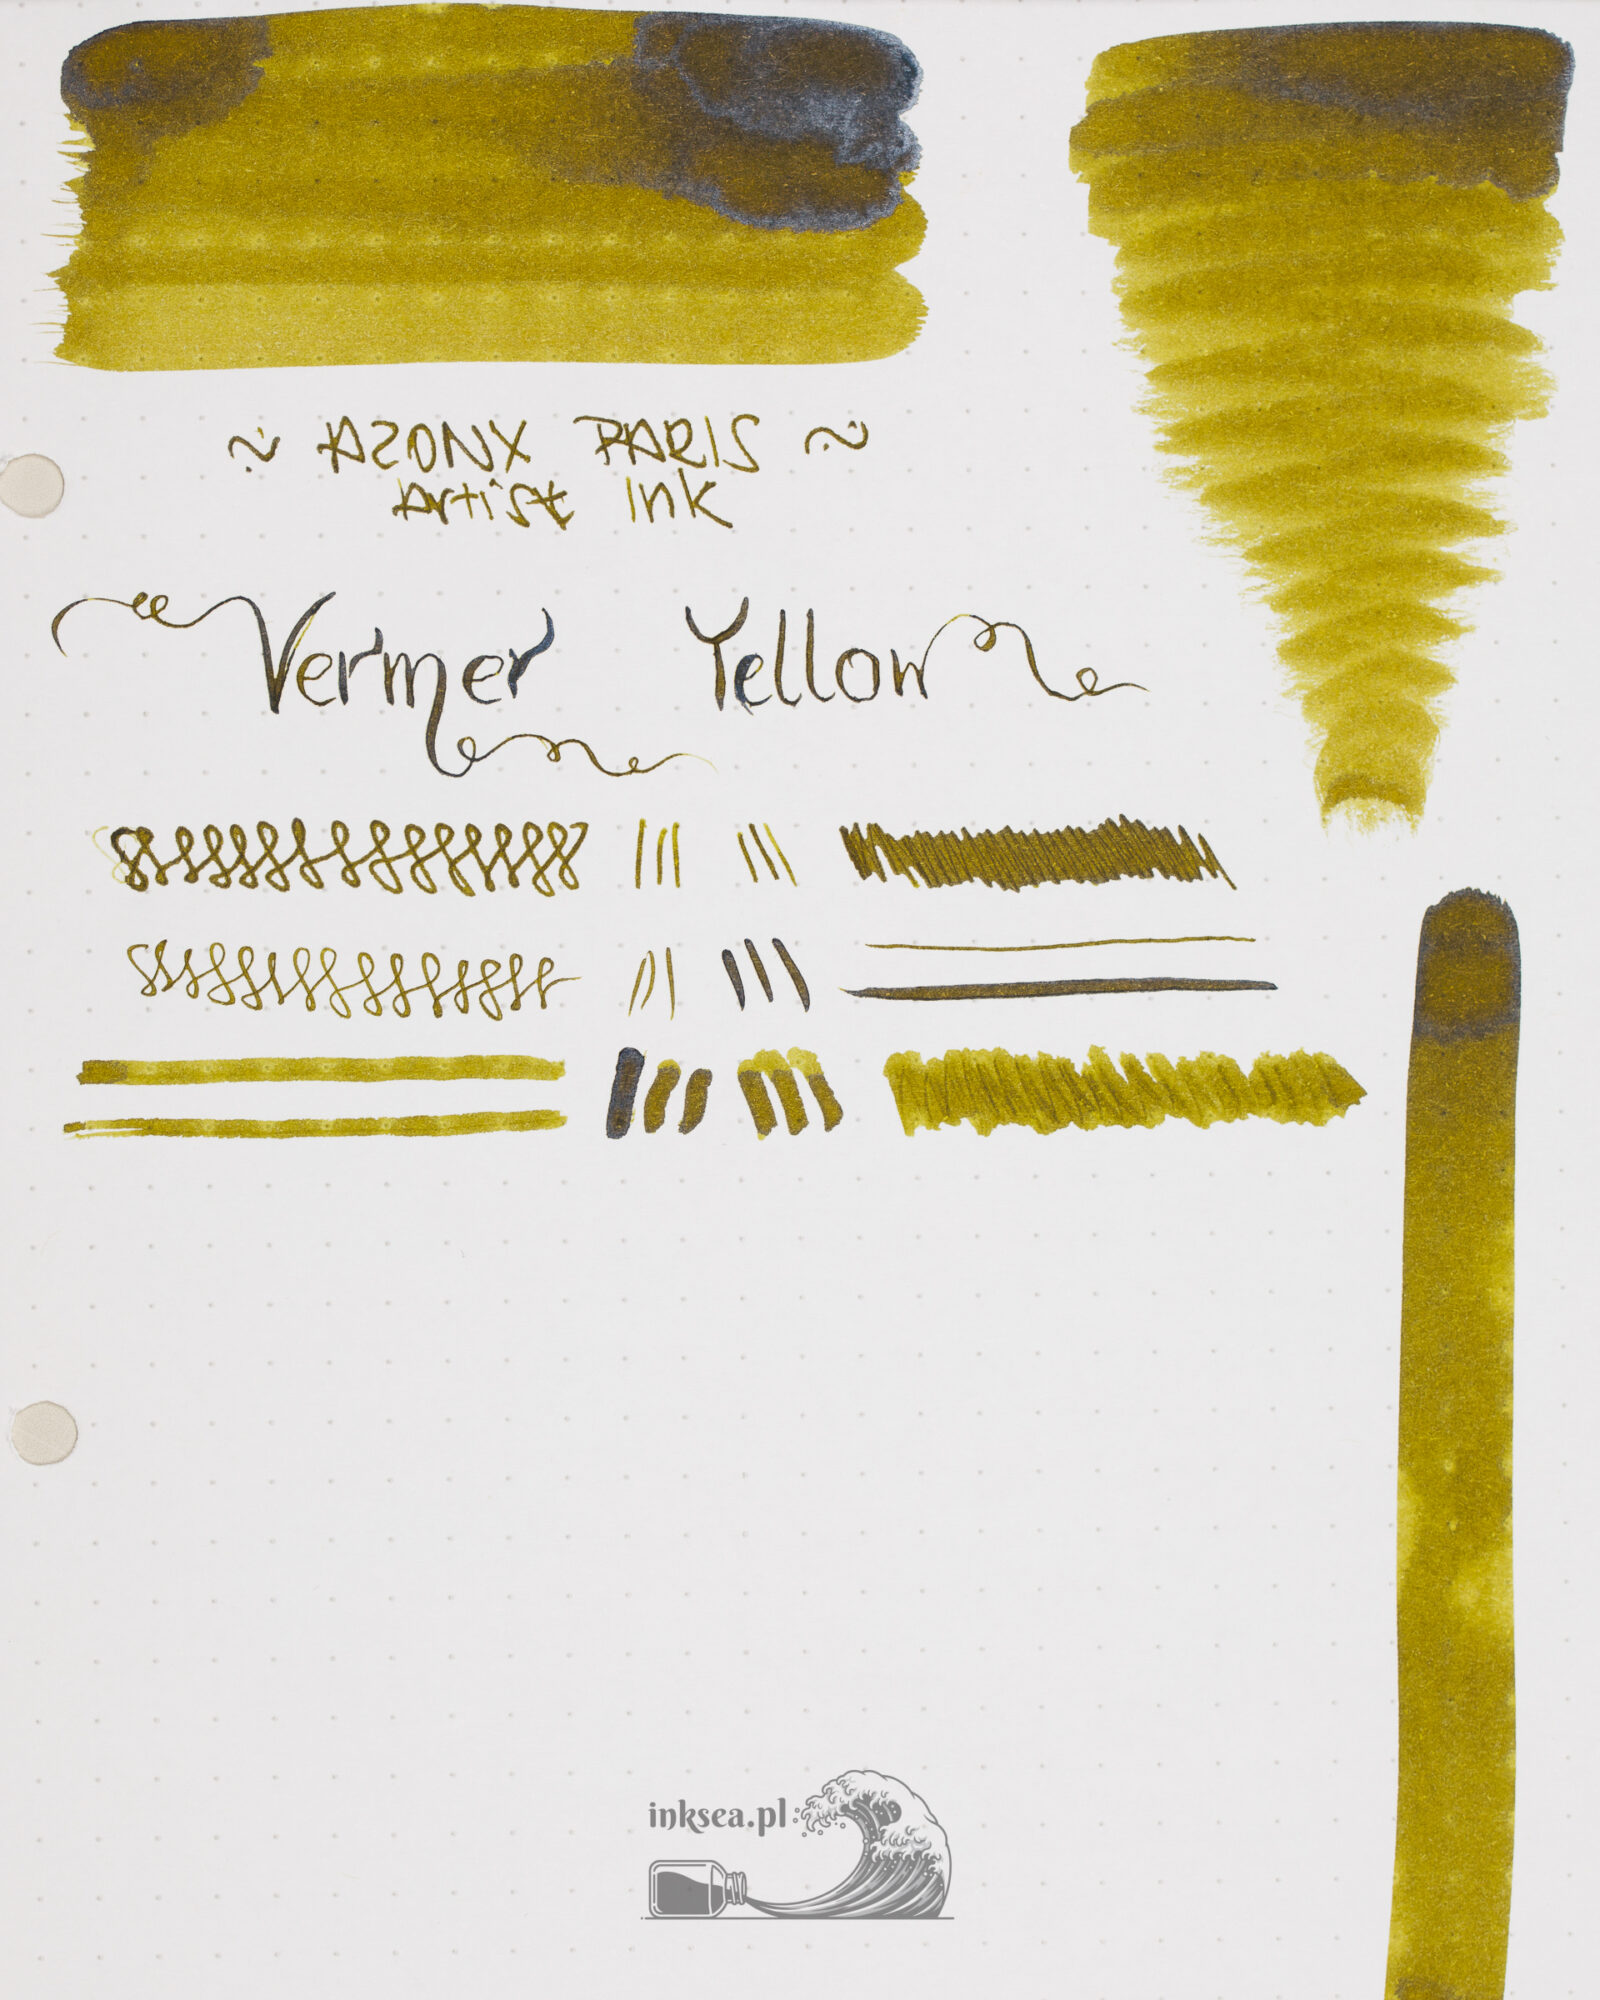 ~ AZONX PARIS ~
Artist Ink
Vermer Yellow
inksea.pl